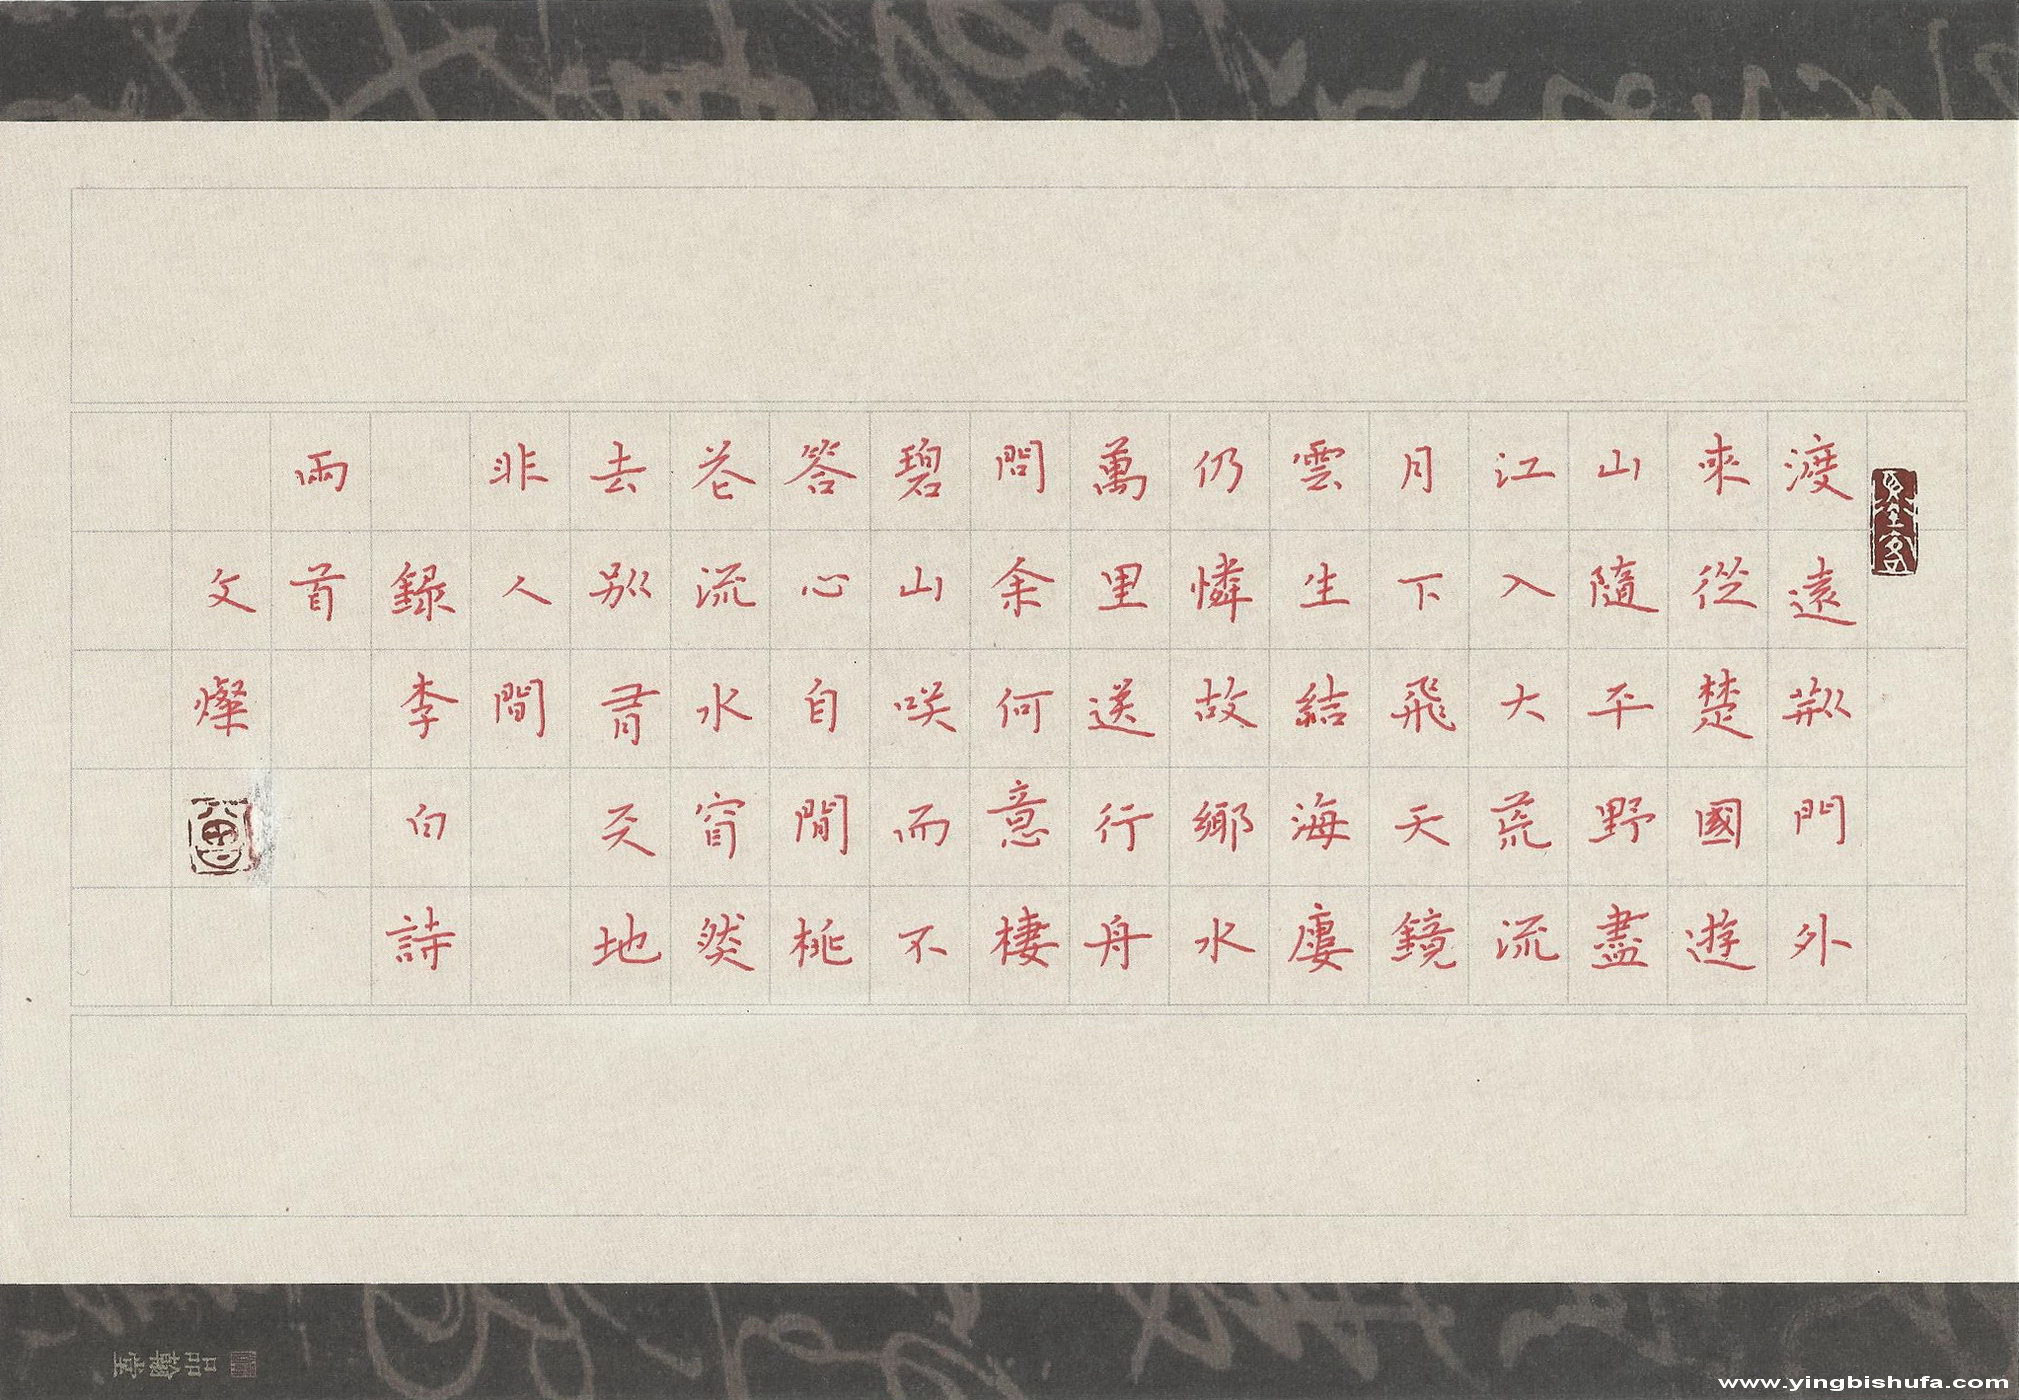 渡遠荊門外
來從楚國遊
山隨平野盡
江入大荒流
月下飛天鏡
雲生結海廔
仍憐故鄉水
萬里送行舟
問余何意棲
碧山咲而不
答心自閒桃
花流水窅然
去別有天地
非人間
錄李白詩
兩首
文燦
品翰堂
www.yingbishufa.com